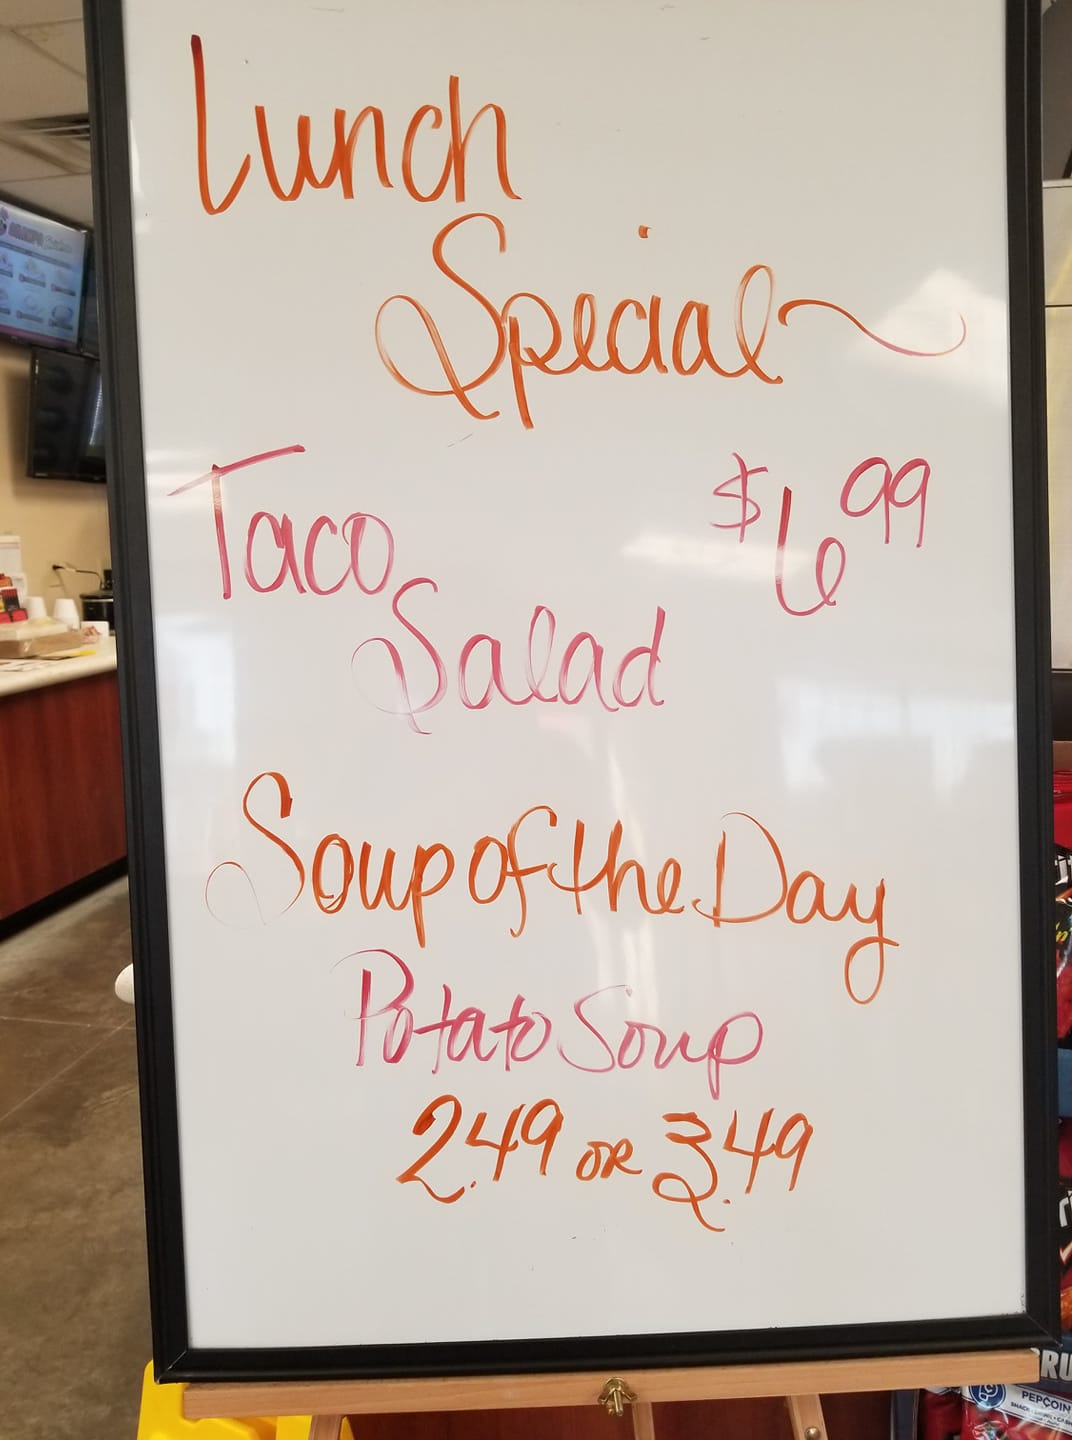 Lunch
Special
Taco
Salad
$6.99
Soup of the Day
Potato Soup
2.49 or 3.49
PEPCOIN